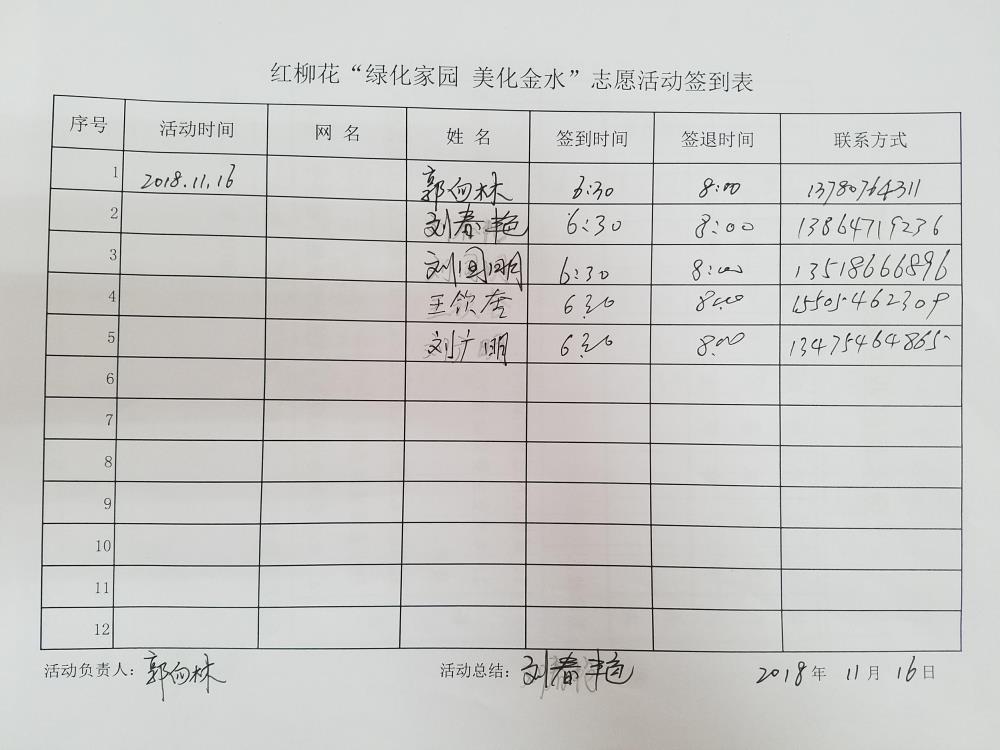 红柳花“绿化家园 美化金水”志愿活动签到表
序号 活动时间 网 名 姓 名 签到时间 签退时间 联系方式
1 2018.11.16 郭向林 6:30 8:00 13780764311
2 刘春艳 6:30 8:00 13864719236
3 刘国明 6:30 8:00 13518666896
4 王钦奎 6:30 8:00 15505462309
5 刘广明 6:30 8:00 13475464865
6
7
8
9
10
11
12
活动负责人：郭向林 活动总结：刘春艳 2018年 11月 16日